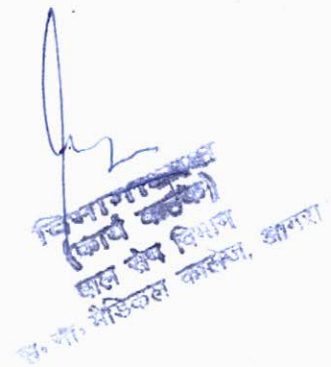 विभागाध्यक्ष
(कार्य वाहक)
बाल रोग विभाग
मेडिकल कालेज, आगरा